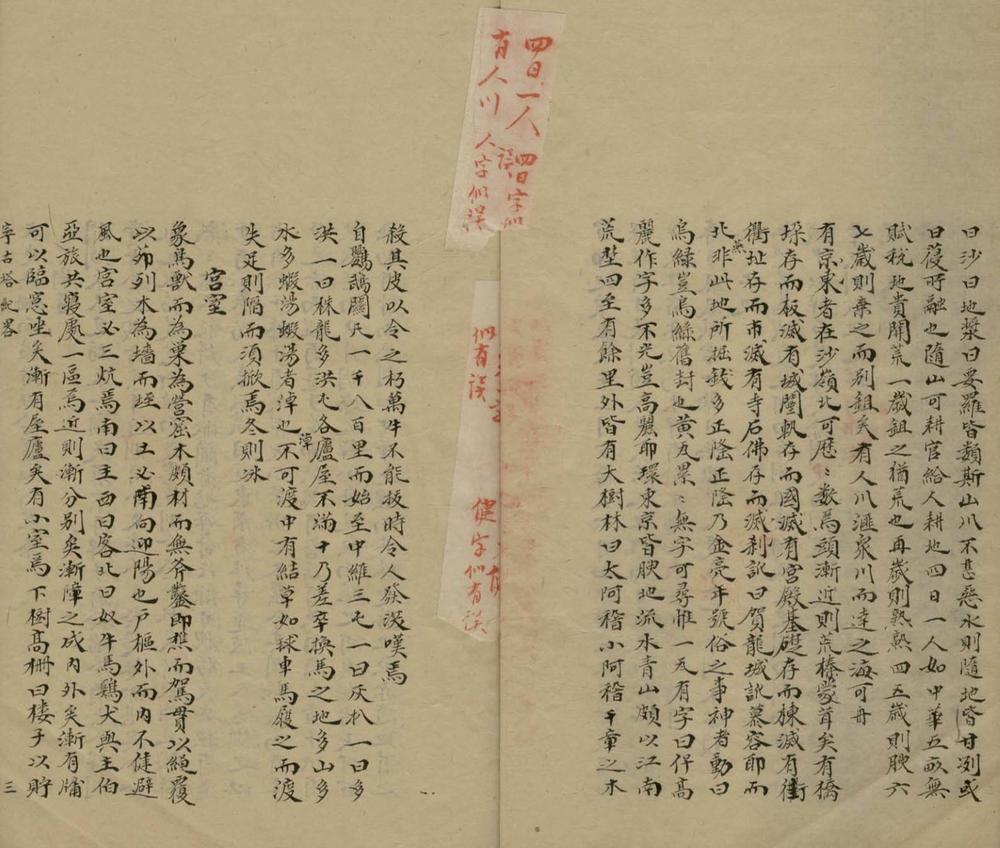 曰沙曰地槳曰妥羅皆類斯山川不甚惡水則隨地皆甘冽或
曰葠時融也隨山可耕官給人耕地四日一人如中華五畝無
賦稅地貴開荒一歲鉏之猶荒也再歲則熟熟四五歲則腴六
七歲則棄之而別鉏矣有人川滙泉川而達之海可舟
有東京者在沙嶺北可歷歷數焉頭漸近則荒榛蒙茸矣有橋
垛存而板滅有城闉軌存而國滅有宮殿基礎存而棟滅有街
衢址存而市滅有寺石佛存而滅剎訛曰賀龍城訛慕容即而
北燕非此地所掘錢多正隆正隆乃金亮年號俗之事神者動曰
烏綠豈烏綠舊封也黃瓦累累無字可尋惟一瓦有字曰保高
麗作字多不充豈高麗耶環東京皆腴地流水青山頗以江南
荒塹四至有餘里外皆有大樹林曰太阿稽小阿稽千章之木
殺其皮以令之朽萬牛不能扳時令人發浩嘆焉
自鸚鵡關凡一千八百里而始至中維三屯一曰灰扒一曰多
洪一曰株龍多洪屯各廬屋不滿十乃差卒換馬之地多山多
水多蝦湯蝦湯者淖也不可渡中有結草如球車馬履之而渡
潭
失足則陷而須掀焉冬則冰
宮室
象鳥獸而為巢為營窟木頗材而無斧鑿即樵而駕貫以繩覆
以茆列木為墻而垤以土必南向迎陽也戶樞外而內不健避
風也宮室必三炕焉南曰主西曰客北曰奴牛馬鷄犬與主伯
亞旅共寢處一區焉近則漸分別矣漸障之成內外矣漸有牖
可以臨窓坐矣漸有屋廬矣有小室焉下樹高柵曰樓子以貯
寧古塔紀畧
三
四日一人 四日字似誤
有人川 人字似誤
似有誤
健字似有誤